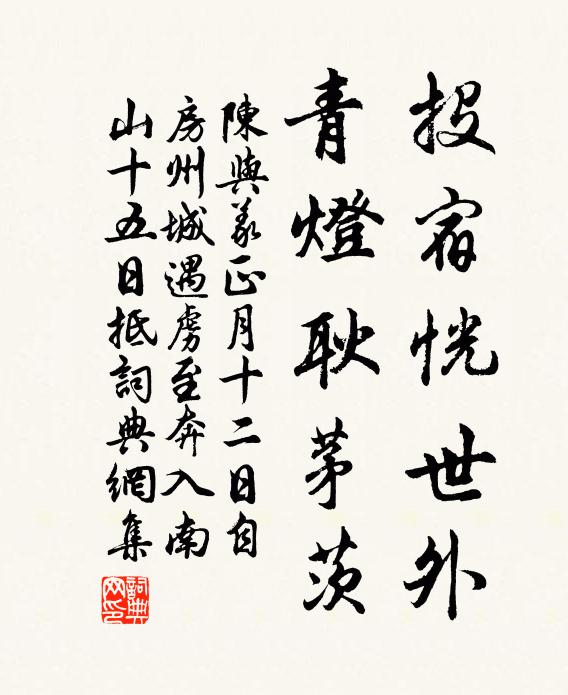 投宿恍世外
青燈耿茅茨
陳與義正月十二日自
房州城遇虜至奔入南
山十五日抵詞典網集
詞典
网印